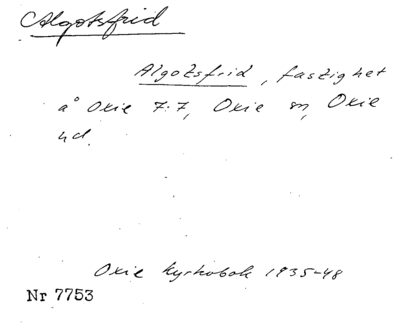 Algotsfrid
Algotsfrid, fastighet
å Oxie 7:7, Oxie sn, Oxie
hd.
Oxie kyrkobok 1935-48
Nr 7753